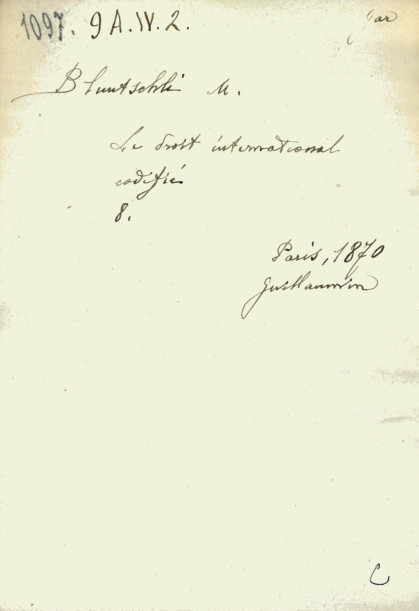 1097. 9 A. IV. 2.
Bluntschli M.
Le droit international
codifié
8.
Paris, 1870
Guillaumin
C